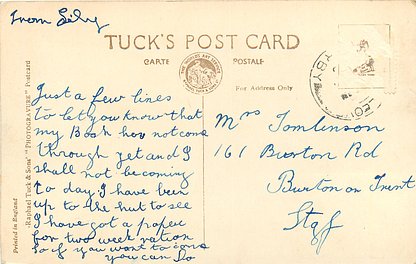 From Silvy
TUCK'S POST CARD
CARTE POSTALE
For Address Only
Just a few lines
to let you know that
my Book hov not cons
through yet and I
shall not be coming
to day I have been
up to the hut to see
I have got a paper
for two week ration
so if you want to cons
you can Do
Mrs Tomlinson
161 Burton Rd
Burton on Trent
Staf
Raphael Tuck & Sons' "PHOTOGRAVURE" Postcard
Printed in England